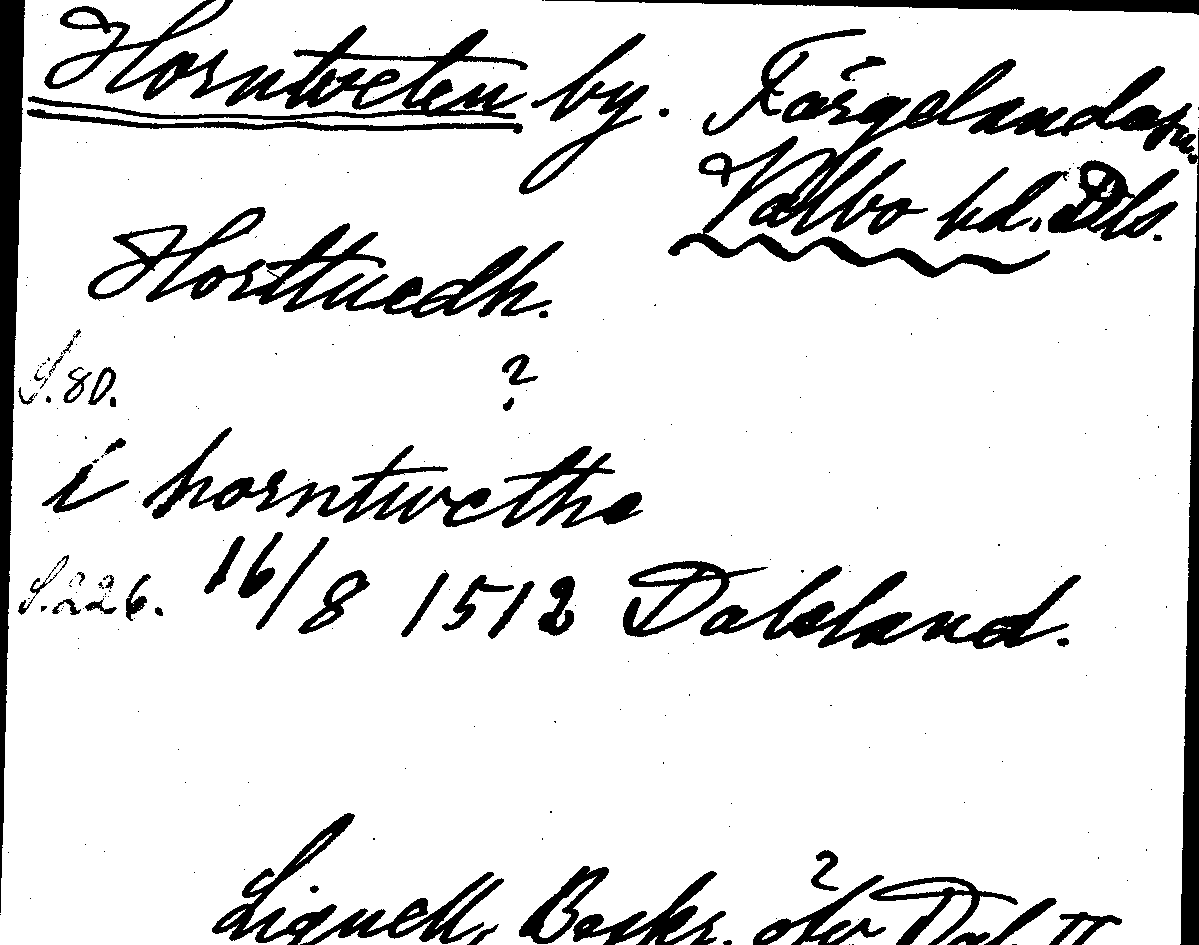 Horntveten by. Färgelanda sn.
Valbo hd. Dls.
Horttuedh.
S. 80. ?
i horntwethe
S. 226. 16/8 1512 Dalsland.
Lignell, Beskr. öfv. Dal II